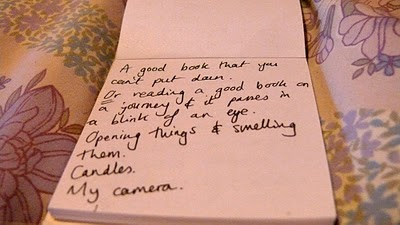 A good book that you
can't put down.
Or reading a good book on
a journey & it passes in
a blink of an eye.
Opening things & smelling
them.
Candles.
My camera.